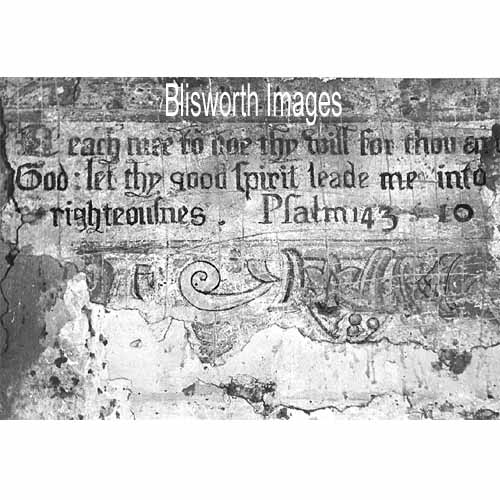 Blisworth Images
Teach mee to doe thy will for thou art
God : let thy good spirit leade me into
righteousnes . Psalm 143 10